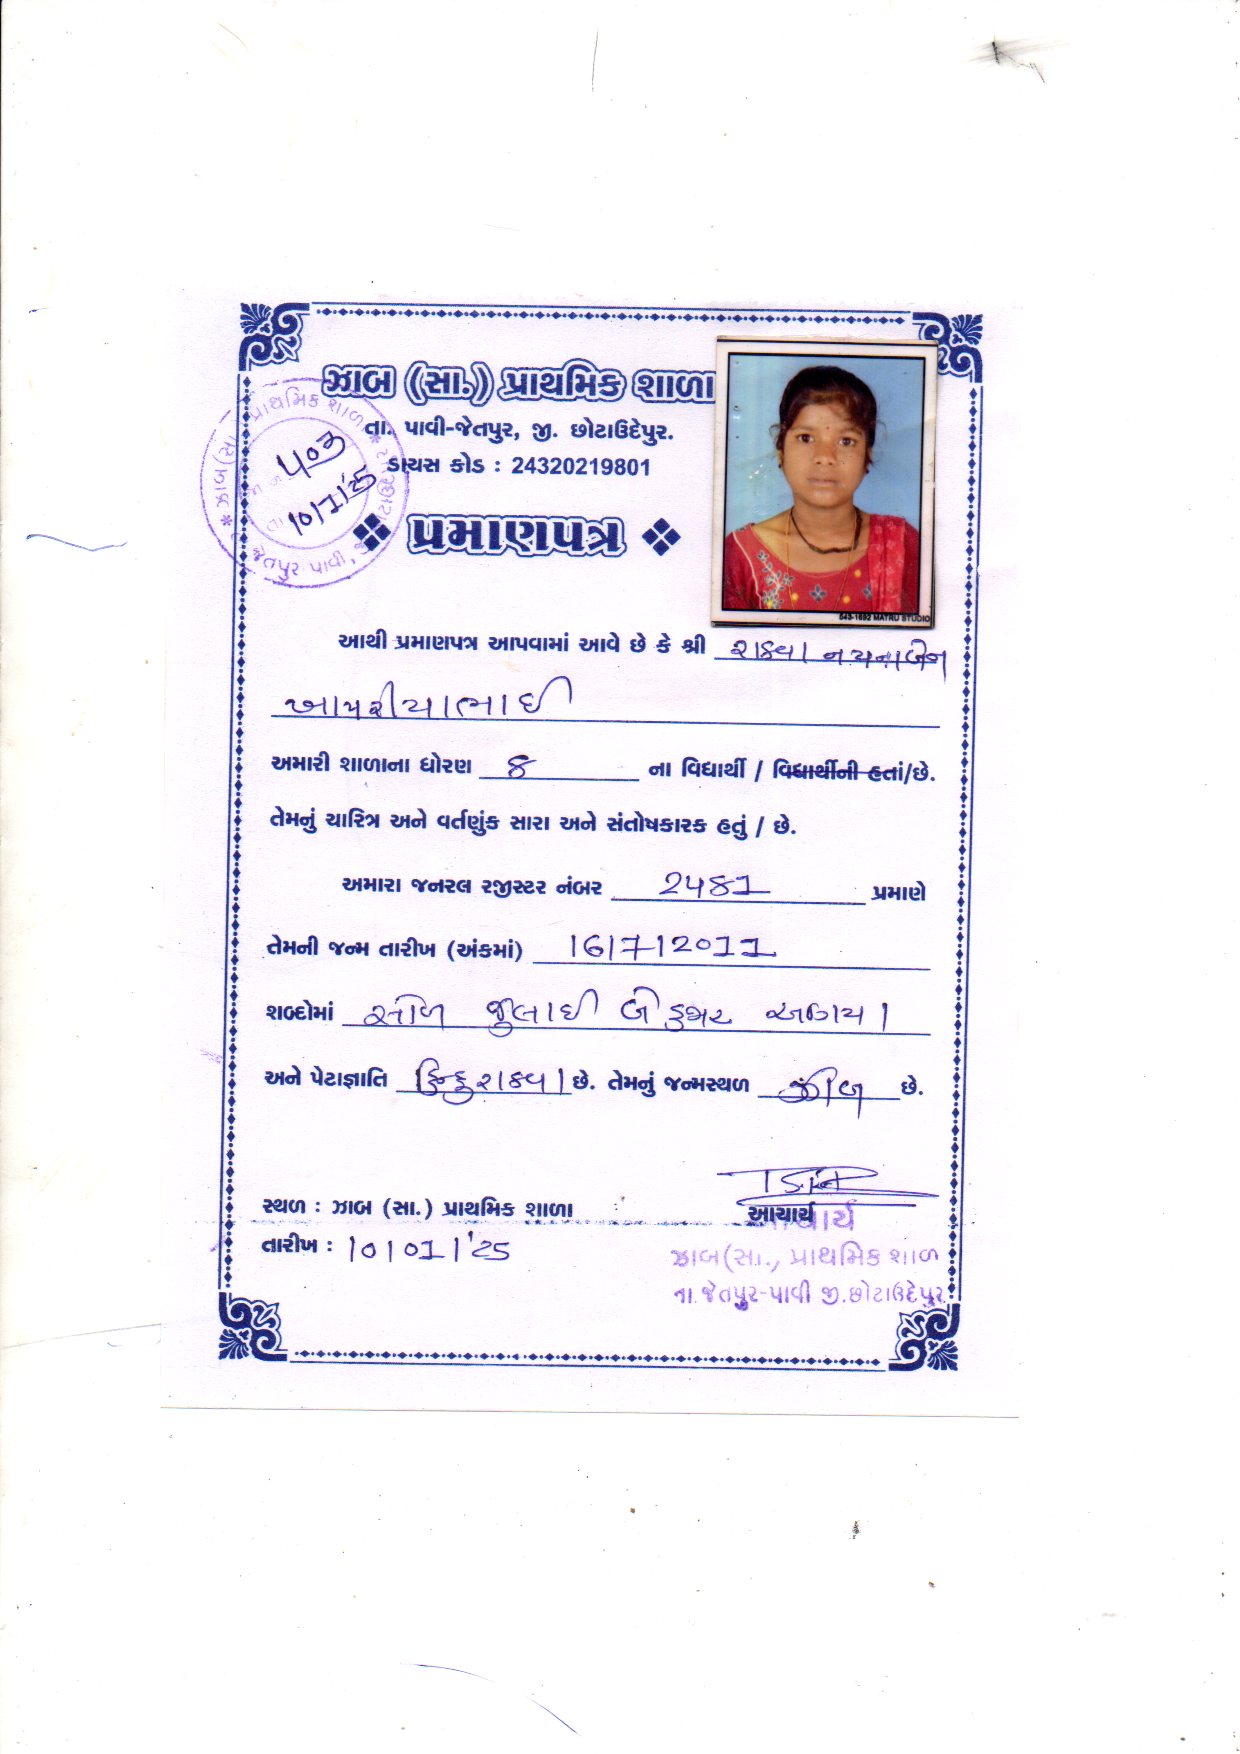 ઝાબ (સા.) પ્રાથમિક શાળા
તા. પાવી-જેતપુર, જી. છોટાઉદેપુર.
ડાયસ કોડ : 24320219801
પ્રમાણપત્ર
ઝાબ(સા. પ્રાથમિક શાળા
જેતપુર પાવી,
૫૦૩
તા 10/1/25
543-1692 MATRU STUDIO
આથી પ્રમાણપત્ર આપવામાં આવે છે કે શ્રી રાઠવા નયનાબેન
ખાપરીયાભાઈ
અમારી શાળાના ધોરણ ૪ ના વિદ્યાર્થી / વિદ્યાર્થીની હતાં/છે.
તેમનું ચારિત્ર અને વર્તણુંક સારા અને સંતોષકારક હતું / છે.
અમારા જનરલ રજીસ્ટર નંબર 2481 પ્રમાણે
તેમની જન્મ તારીખ (અંકમાં) 16/7/2011
શબ્દોમાં સોળ જુલાઈ બે હજાર અગિયાર
અને પેટાજ્ઞાતિ હિન્દુ રાઠવા છે. તેમનું જન્મસ્થળ ઝાબ છે.
સ્થળ : ઝાબ (સા.) પ્રાથમિક શાળા આચાર્ય
આચાર્ય
તારીખ : 10/01/'25
ઝાબ(સા., પ્રાથમિક શાળ
તા.જેતપુર-પાવી જી.છોટાઉદેપુર